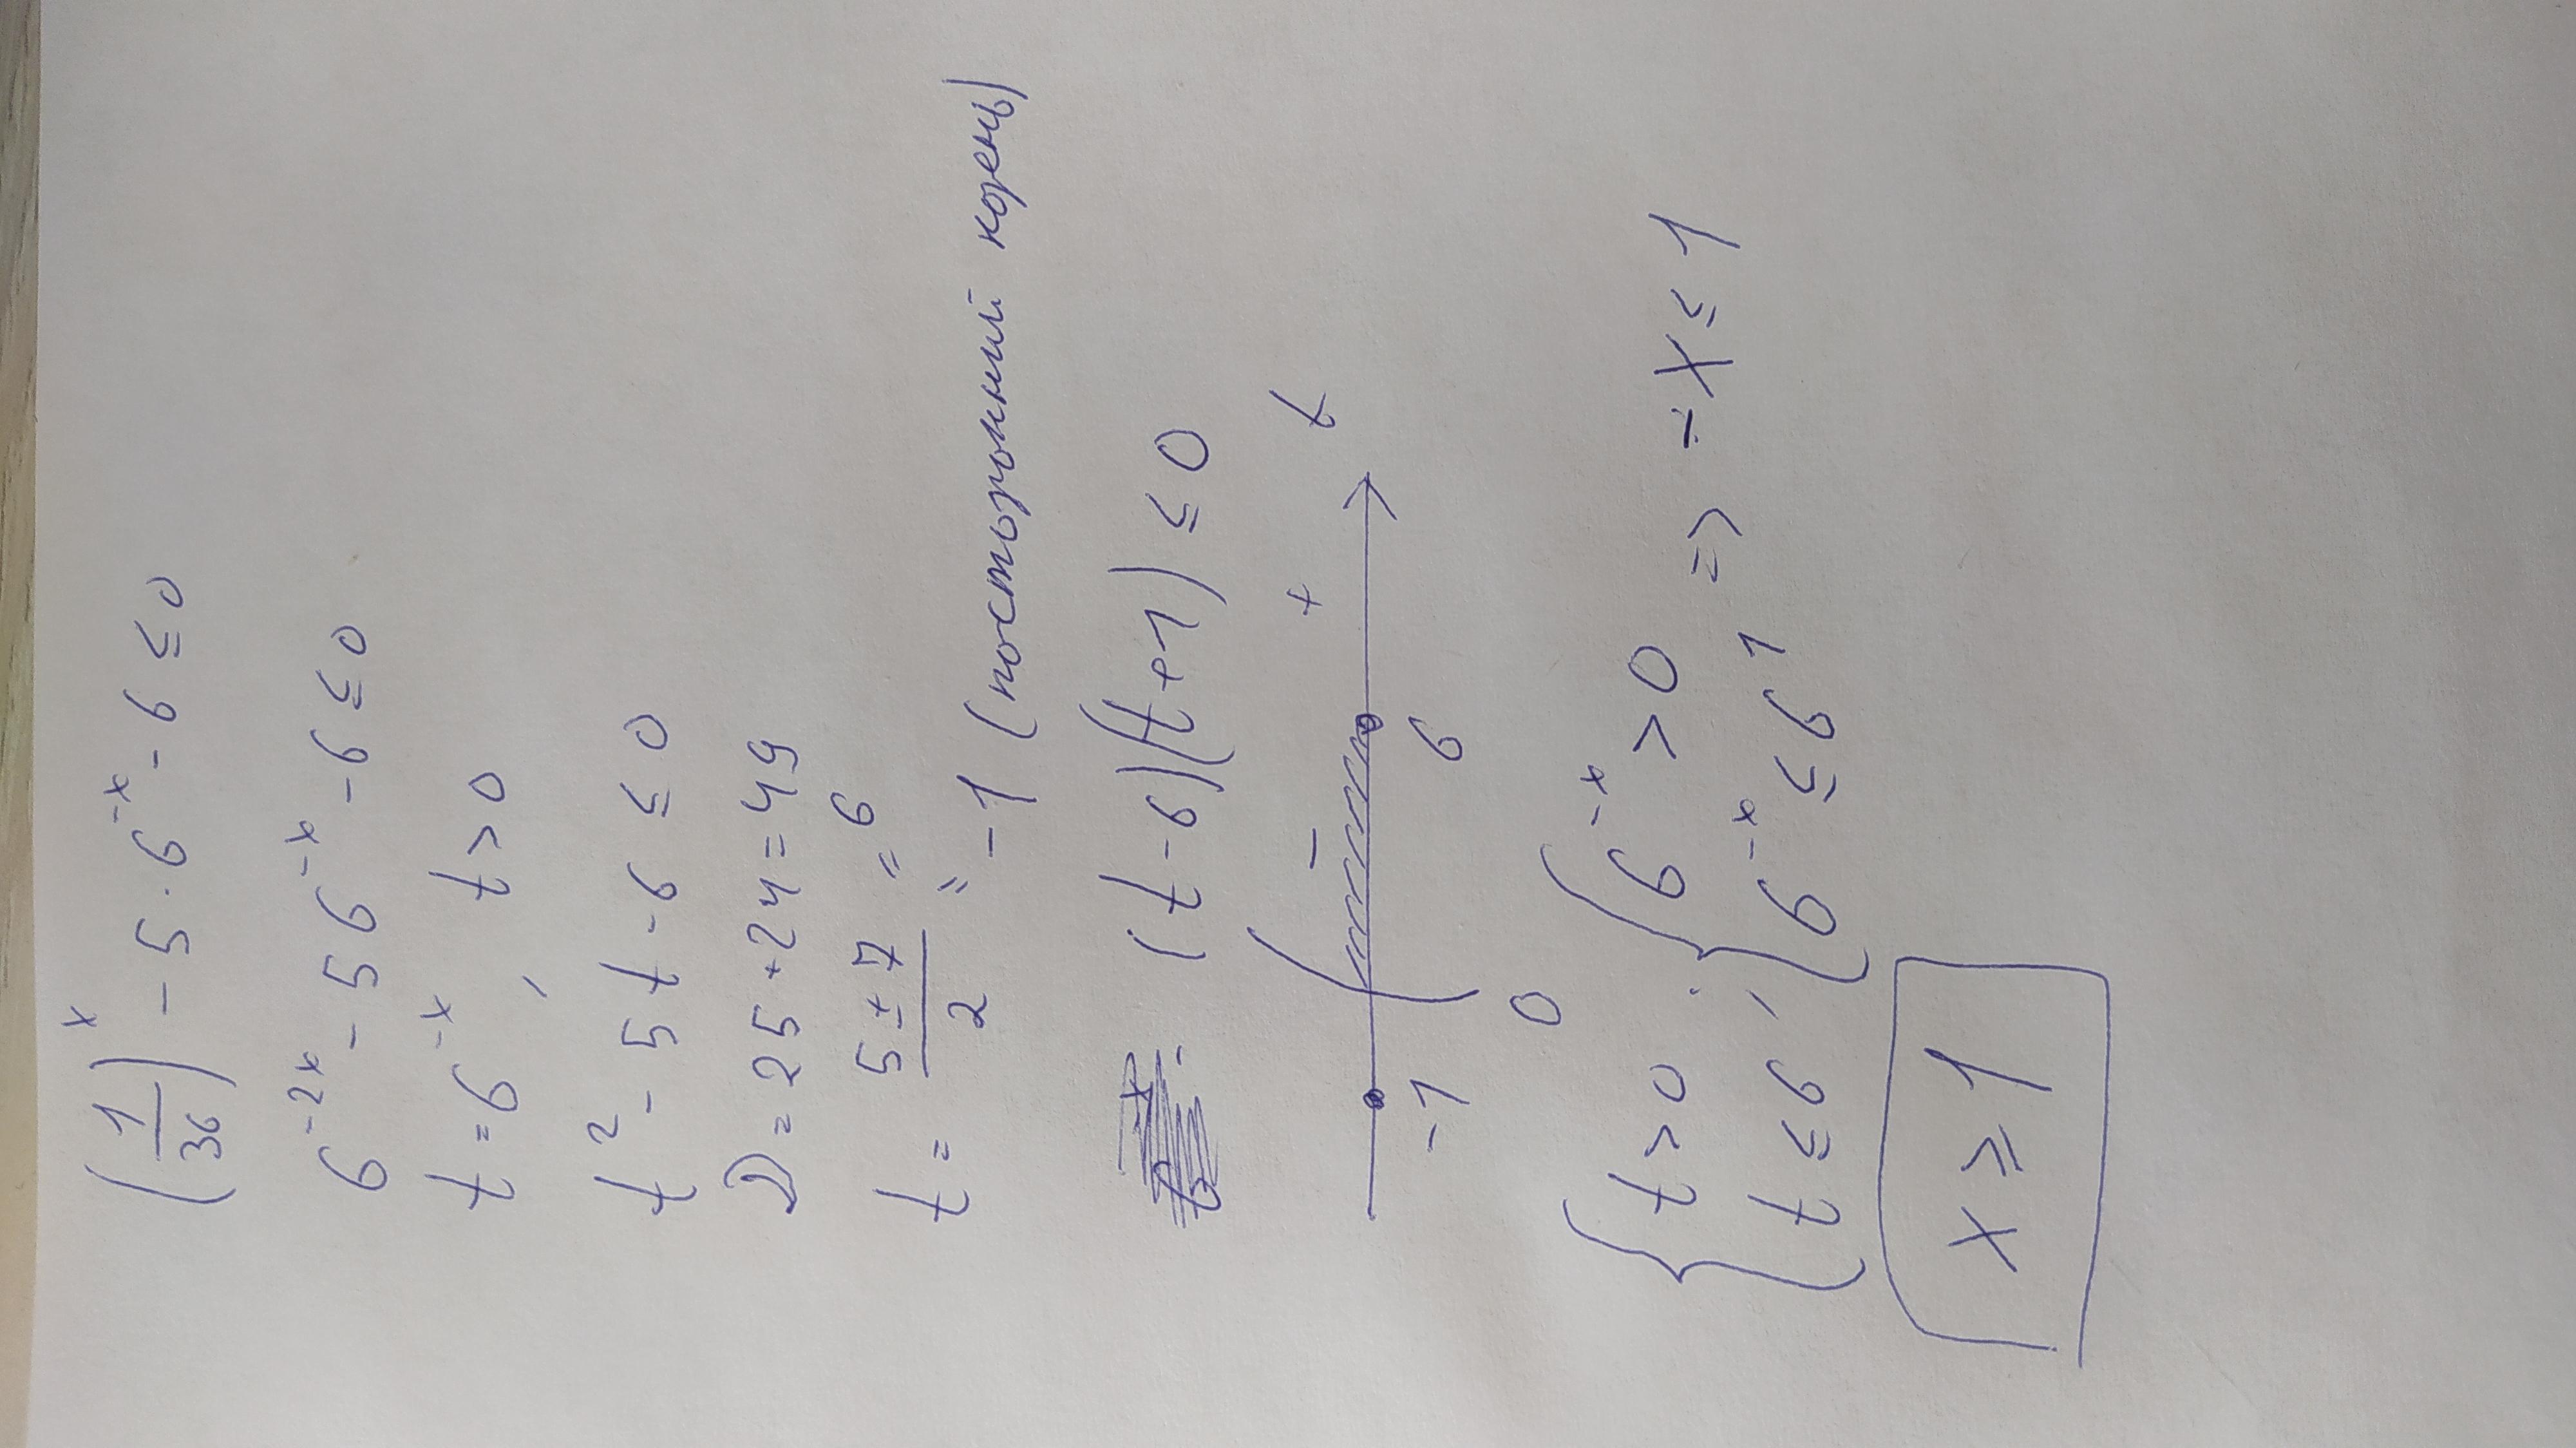 (1/36)^x - 5 · 6^-x - 6 ≤ 0
6^-2x - 5 6^-x - 6 ≤ 0
t = 6^-x , t > 0
t^2 - 5t - 6 ≤ 0
D = 25 + 24 = 49
t = (5 ± 7)/2 = 6
= -1 (посторонний корень)
(t - 6)(t + 1) ≤ 0
- + t
-1 0 6
{ t > 0 { 6^-x > 0
t ≤ 6 , 6^-x ≤ 6^1 => -x ≤ 1
x ≥ 1